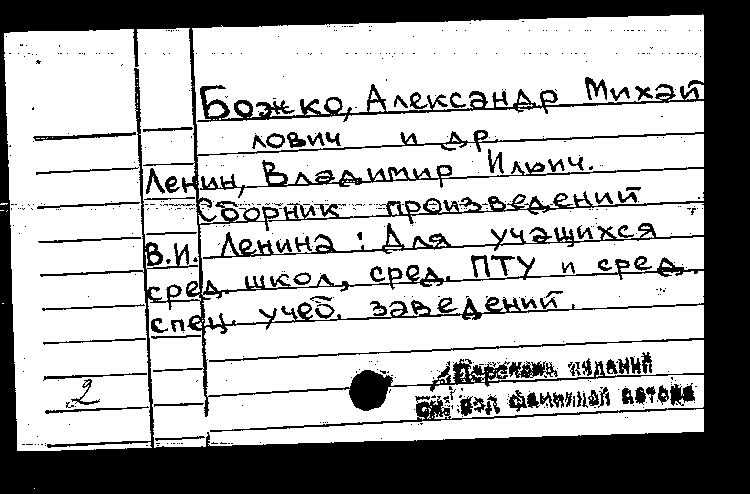 Божко, Александр Михай
лович и др
Ленин, Владимир Ильич.
Сборник произведений
В.И. Ленина : Для учащихся
сред. школ, сред. ПТУ и сред.
спец. учеб. заведений.
2
Перечень изданий
см. под фамилией автора